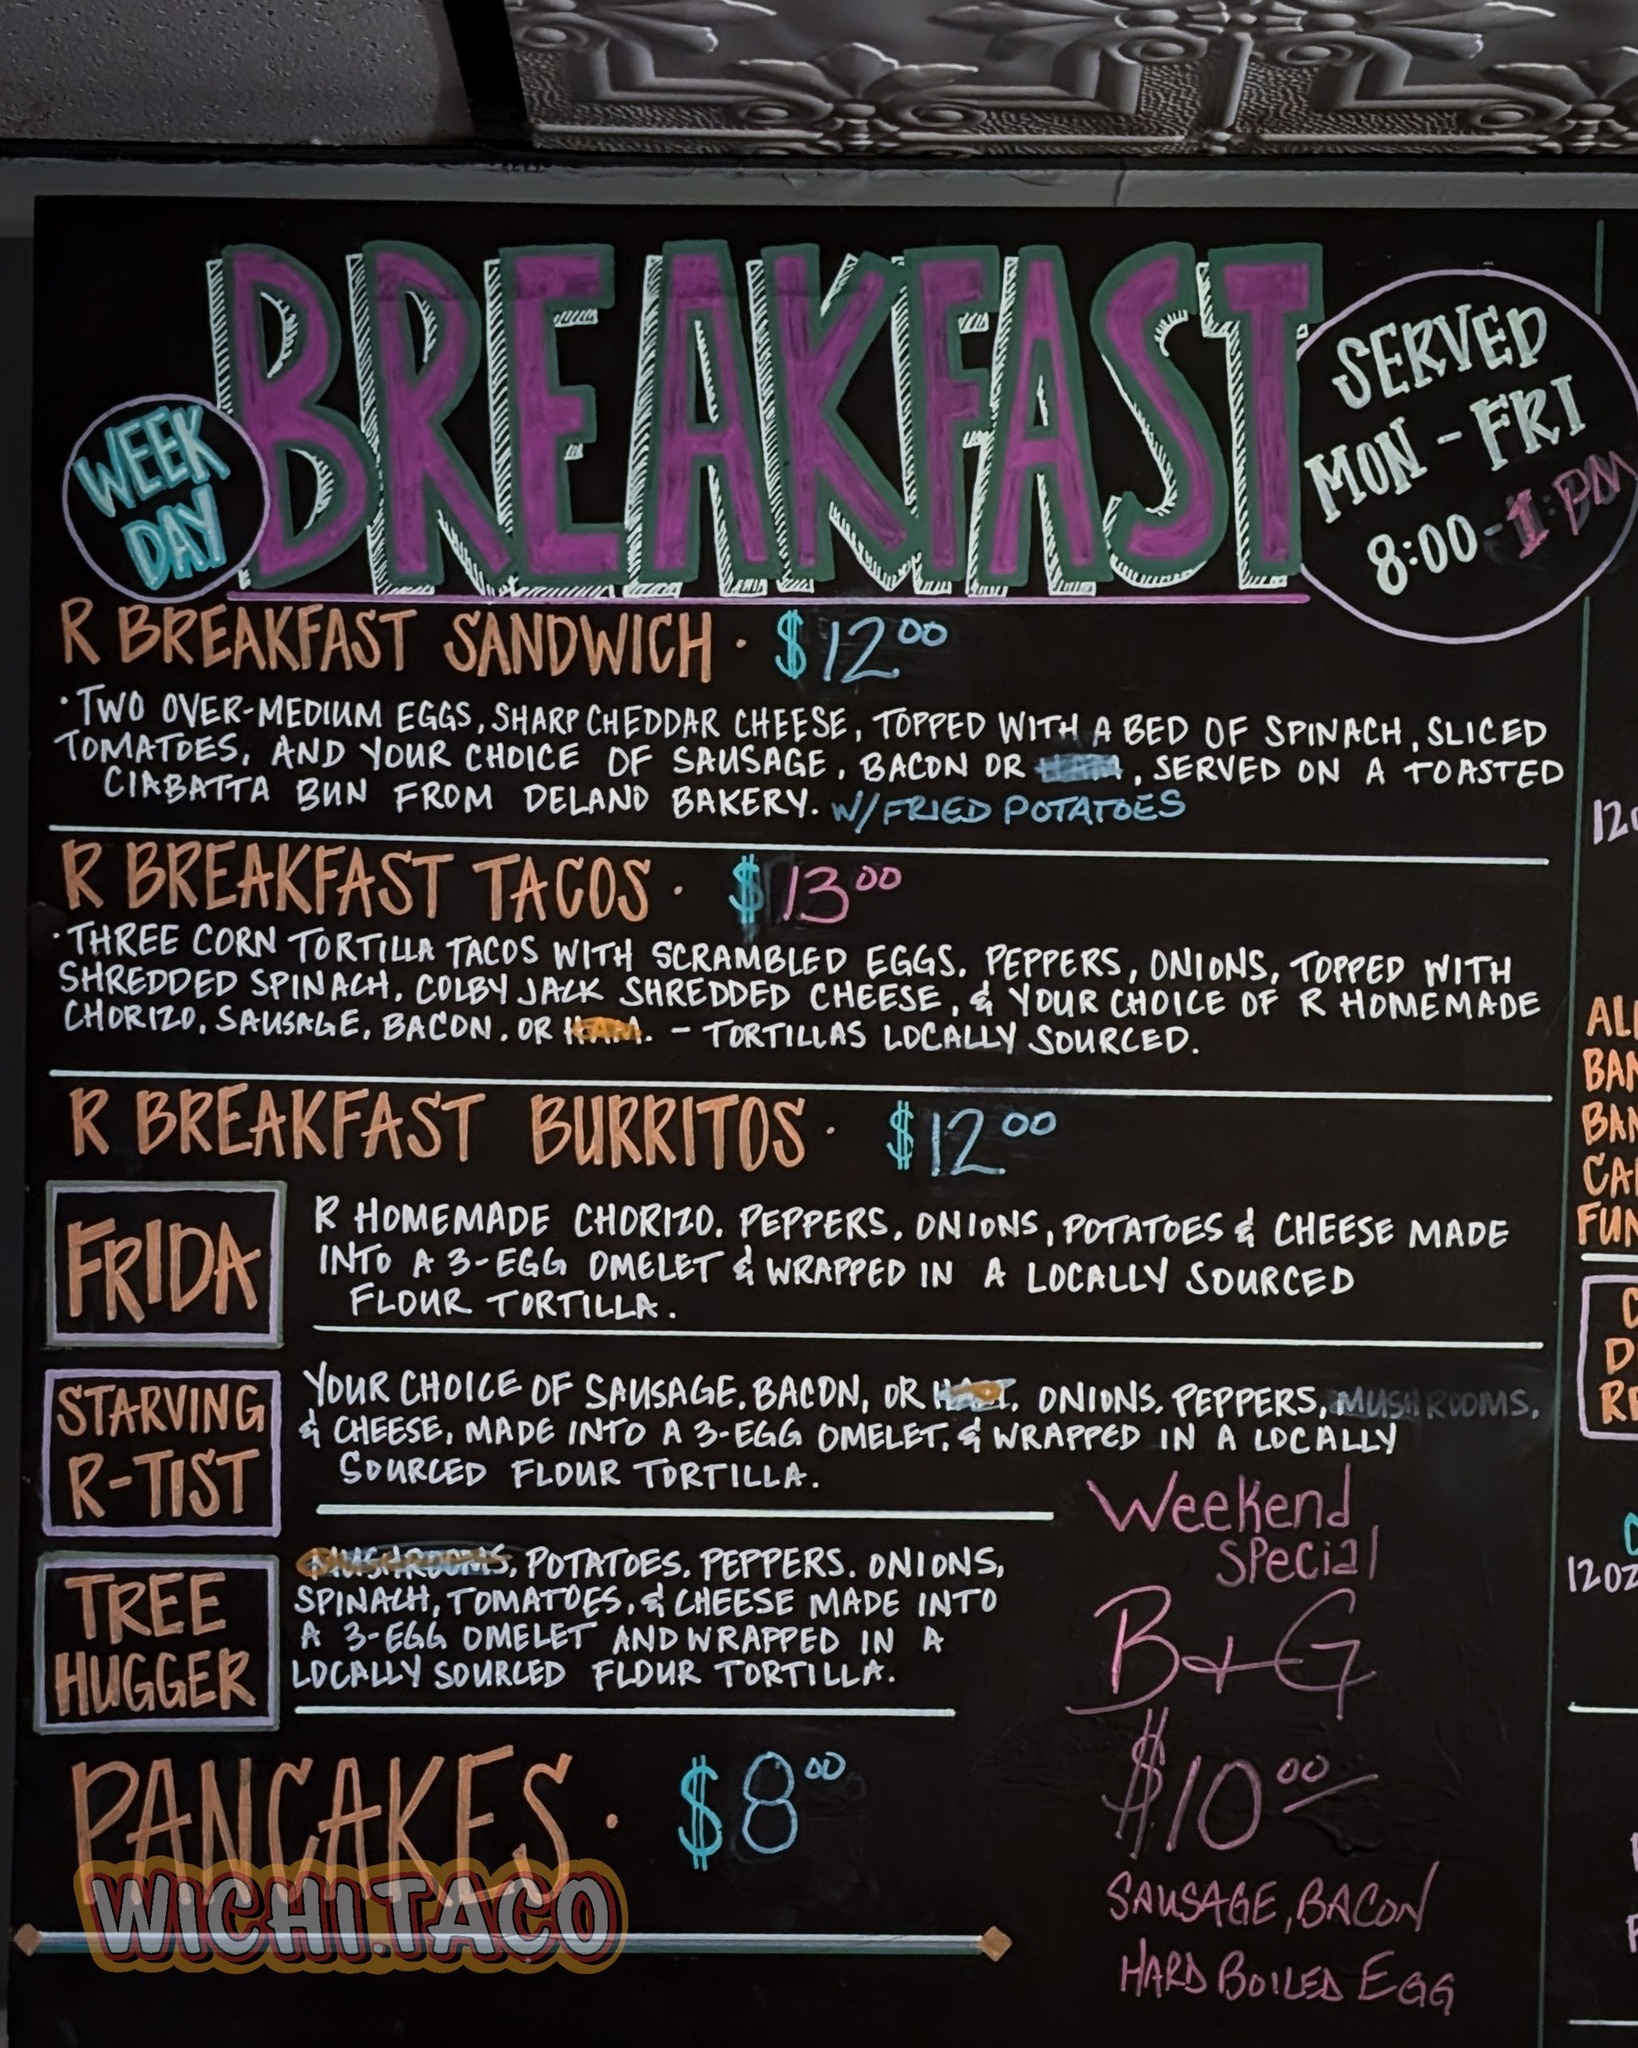 WEEK
DAY
BREAKFAST
SERVED
MON-FRI
8:00-1:PM
R BREAKFAST SANDWICH · $12.00
·TWO OVER-MEDIUM EGGS, SHARP CHEDDAR CHEESE, TOPPED WITH A BED OF SPINACH, SLICED
TOMATOES, AND YOUR CHOICE OF SAUSAGE, BACON OR , SERVED ON A TOASTED
CIABATTA BUN FROM DELANO BAKERY. W/FRIED POTATOES
R BREAKFAST TACOS · $13.00
·THREE CORN TORTILLA TACOS WITH SCRAMBLED EGGS, PEPPERS, ONIONS, TOPPED WITH
SHREDDED SPINACH, COLBY JACK SHREDDED CHEESE, & YOUR CHOICE OF R HOMEMADE
CHORIZO, SAUSAGE, BACON, OR HAM. - TORTILLAS LOCALLY SOURCED.
R BREAKFAST BURRITOS · $12.00
FRIDA
R HOMEMADE CHORIZO, PEPPERS, ONIONS, POTATOES & CHEESE MADE
INTO A 3-EGG OMELET & WRAPPED IN A LOCALLY SOURCED
FLOUR TORTILLA.
STARVING
R-TIST
YOUR CHOICE OF SAUSAGE, BACON, OR , ONIONS, PEPPERS, MUSHROOMS,
& CHEESE, MADE INTO A 3-EGG OMELET, & WRAPPED IN A LOCALLY
SOURCED FLOUR TORTILLA.
TREE
HUGGER
MUSHROOMS, POTATOES, PEPPERS, ONIONS,
SPINACH, TOMATOES, & CHEESE MADE INTO
A 3-EGG OMELET AND WRAPPED IN A
LOCALLY SOURCED FLOUR TORTILLA.
PANCAKES · $8.00
Weekend
Special
B+G
$10.00
SAUSAGE, BACON
HARD BOILED EGG
WICHI.TACO